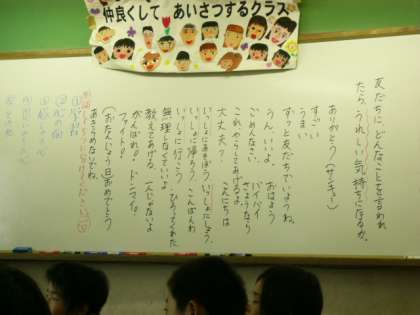 仲良くして あいさつするクラス
友だちに どんなことを言われ
たら、うれしい気持ちになるか。
ありがとう(サンキュー)
すごい
うまい
ずっと友だちでいようね。
うん、いいよ。 おはよう
ごめんなさい。 バイバイ
さようなら
これ やらしてあげるよ。
大丈夫? こんにちは
いっしょにあそぼう いっしょにしよう。
いっしょに帰ろう こんばんわ
いっしょに行こう
無理しなくていいよ ひろってくれた
教えてあげる 一人じゃないよ
がんばれ!! ドンマイ!
ファイト!!
(おたんじょう日)おめでとう
あきらめないでね。